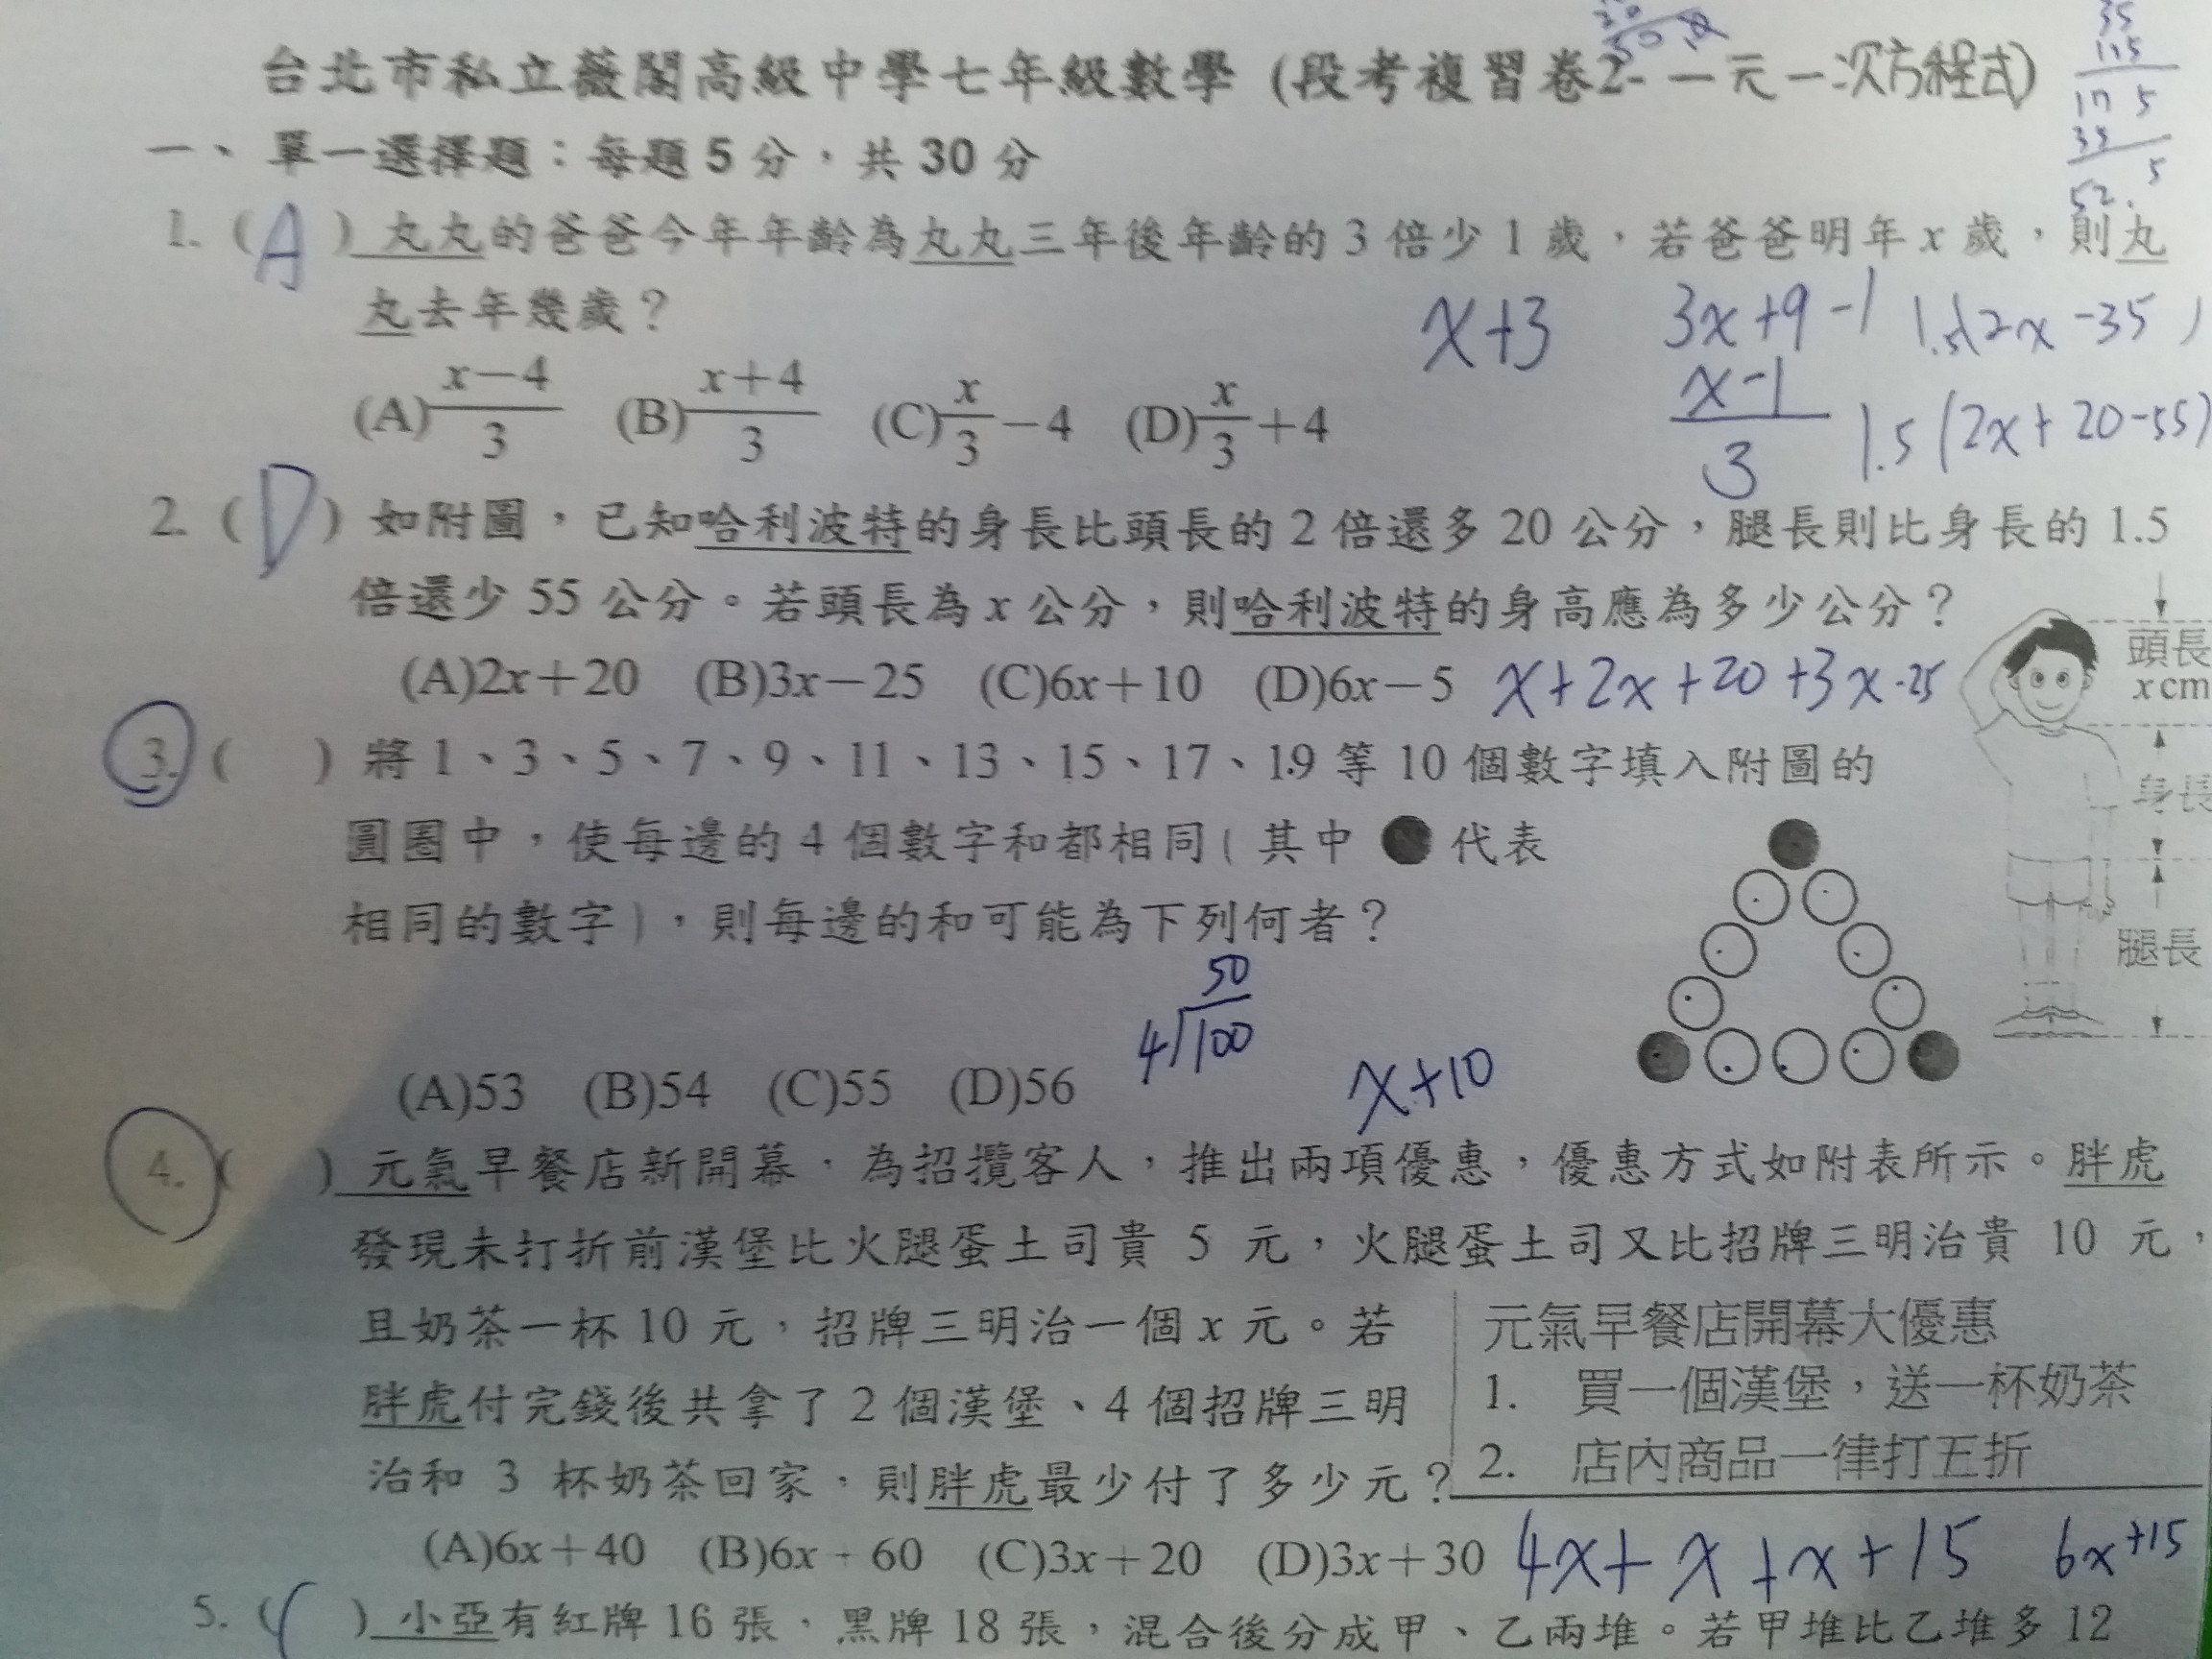 台北市私立薇閣高級中學七年級數學 (段考複習卷2- 一元一次方程式)
35
115
17 5
35
52.5
一、單一選擇題：每題5分，共30分
1. (A) 丸丸的爸爸今年年齡為丸丸三年後年齡的 3 倍少 1 歲，若爸爸明年 x 歲，則丸
丸去年幾歲？
x+3 3x+9-1 1.5(2x-35)
(A) x－4/3 (B) x＋4/3 (C) x/3－4 (D) x/3＋4
x-1/3 1.5(2x+20-55)
2. (D) 如附圖，已知哈利波特的身長比頭長的 2 倍還多 20 公分，腿長則比身長的 1.5
倍還少 55 公分。若頭長為 x 公分，則哈利波特的身高應為多少公分？
(A)2x＋20 (B)3x－25 (C)6x＋10 (D)6x－5 x+2x+20+3x-25
頭長
x cm
身長
腿長
3. ( ) 將 1、3、5、7、9、11、13、15、17、19 等 10 個數字填入附圖的
圓圈中，使每邊的 4 個數字和都相同( 其中 ● 代表
相同的數字)，則每邊的和可能為下列何者？
50
4)100
x+10
(A)53 (B)54 (C)55 (D)56
4. ( ) 元氣早餐店新開幕，為招攬客人，推出兩項優惠，優惠方式如附表所示。胖虎
發現未打折前漢堡比火腿蛋土司貴 5 元，火腿蛋土司又比招牌三明治貴 10 元，
且奶茶一杯 10 元，招牌三明治一個 x 元。若
胖虎付完錢後共拿了 2 個漢堡、4 個招牌三明
治和 3 杯奶茶回家，則胖虎最少付了多少元？
元氣早餐店開幕大優惠
1. 買一個漢堡，送一杯奶茶
2. 店內商品一律打五折
(A)6x＋40 (B)6x＋60 (C)3x＋20 (D)3x＋30 4x+x+x+15 6x+15
5. (C) 小亞有紅牌 16 張，黑牌 18 張，混合後分成甲、乙兩堆。若甲堆比乙堆多 12